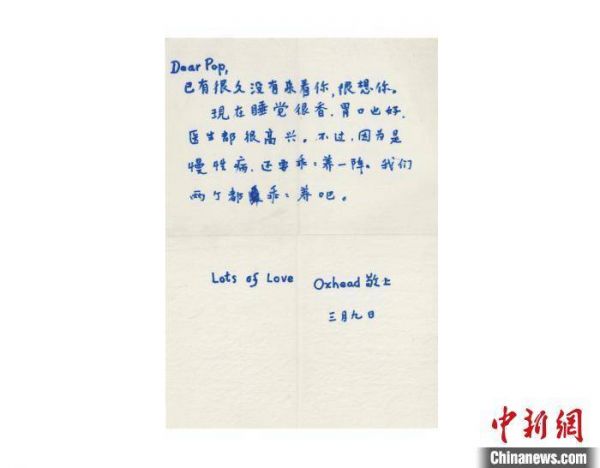 Dear Pop,
已有很久没有来看你,很想你。
现在睡觉很香,胃口也好,
医生都很高兴。不过,因为是
慢性病,还要乖:养一阵。我们
两个都乖:养吧。
Lots of Love Oxhead 敬上
三月九日
中新网
Chinanews.com